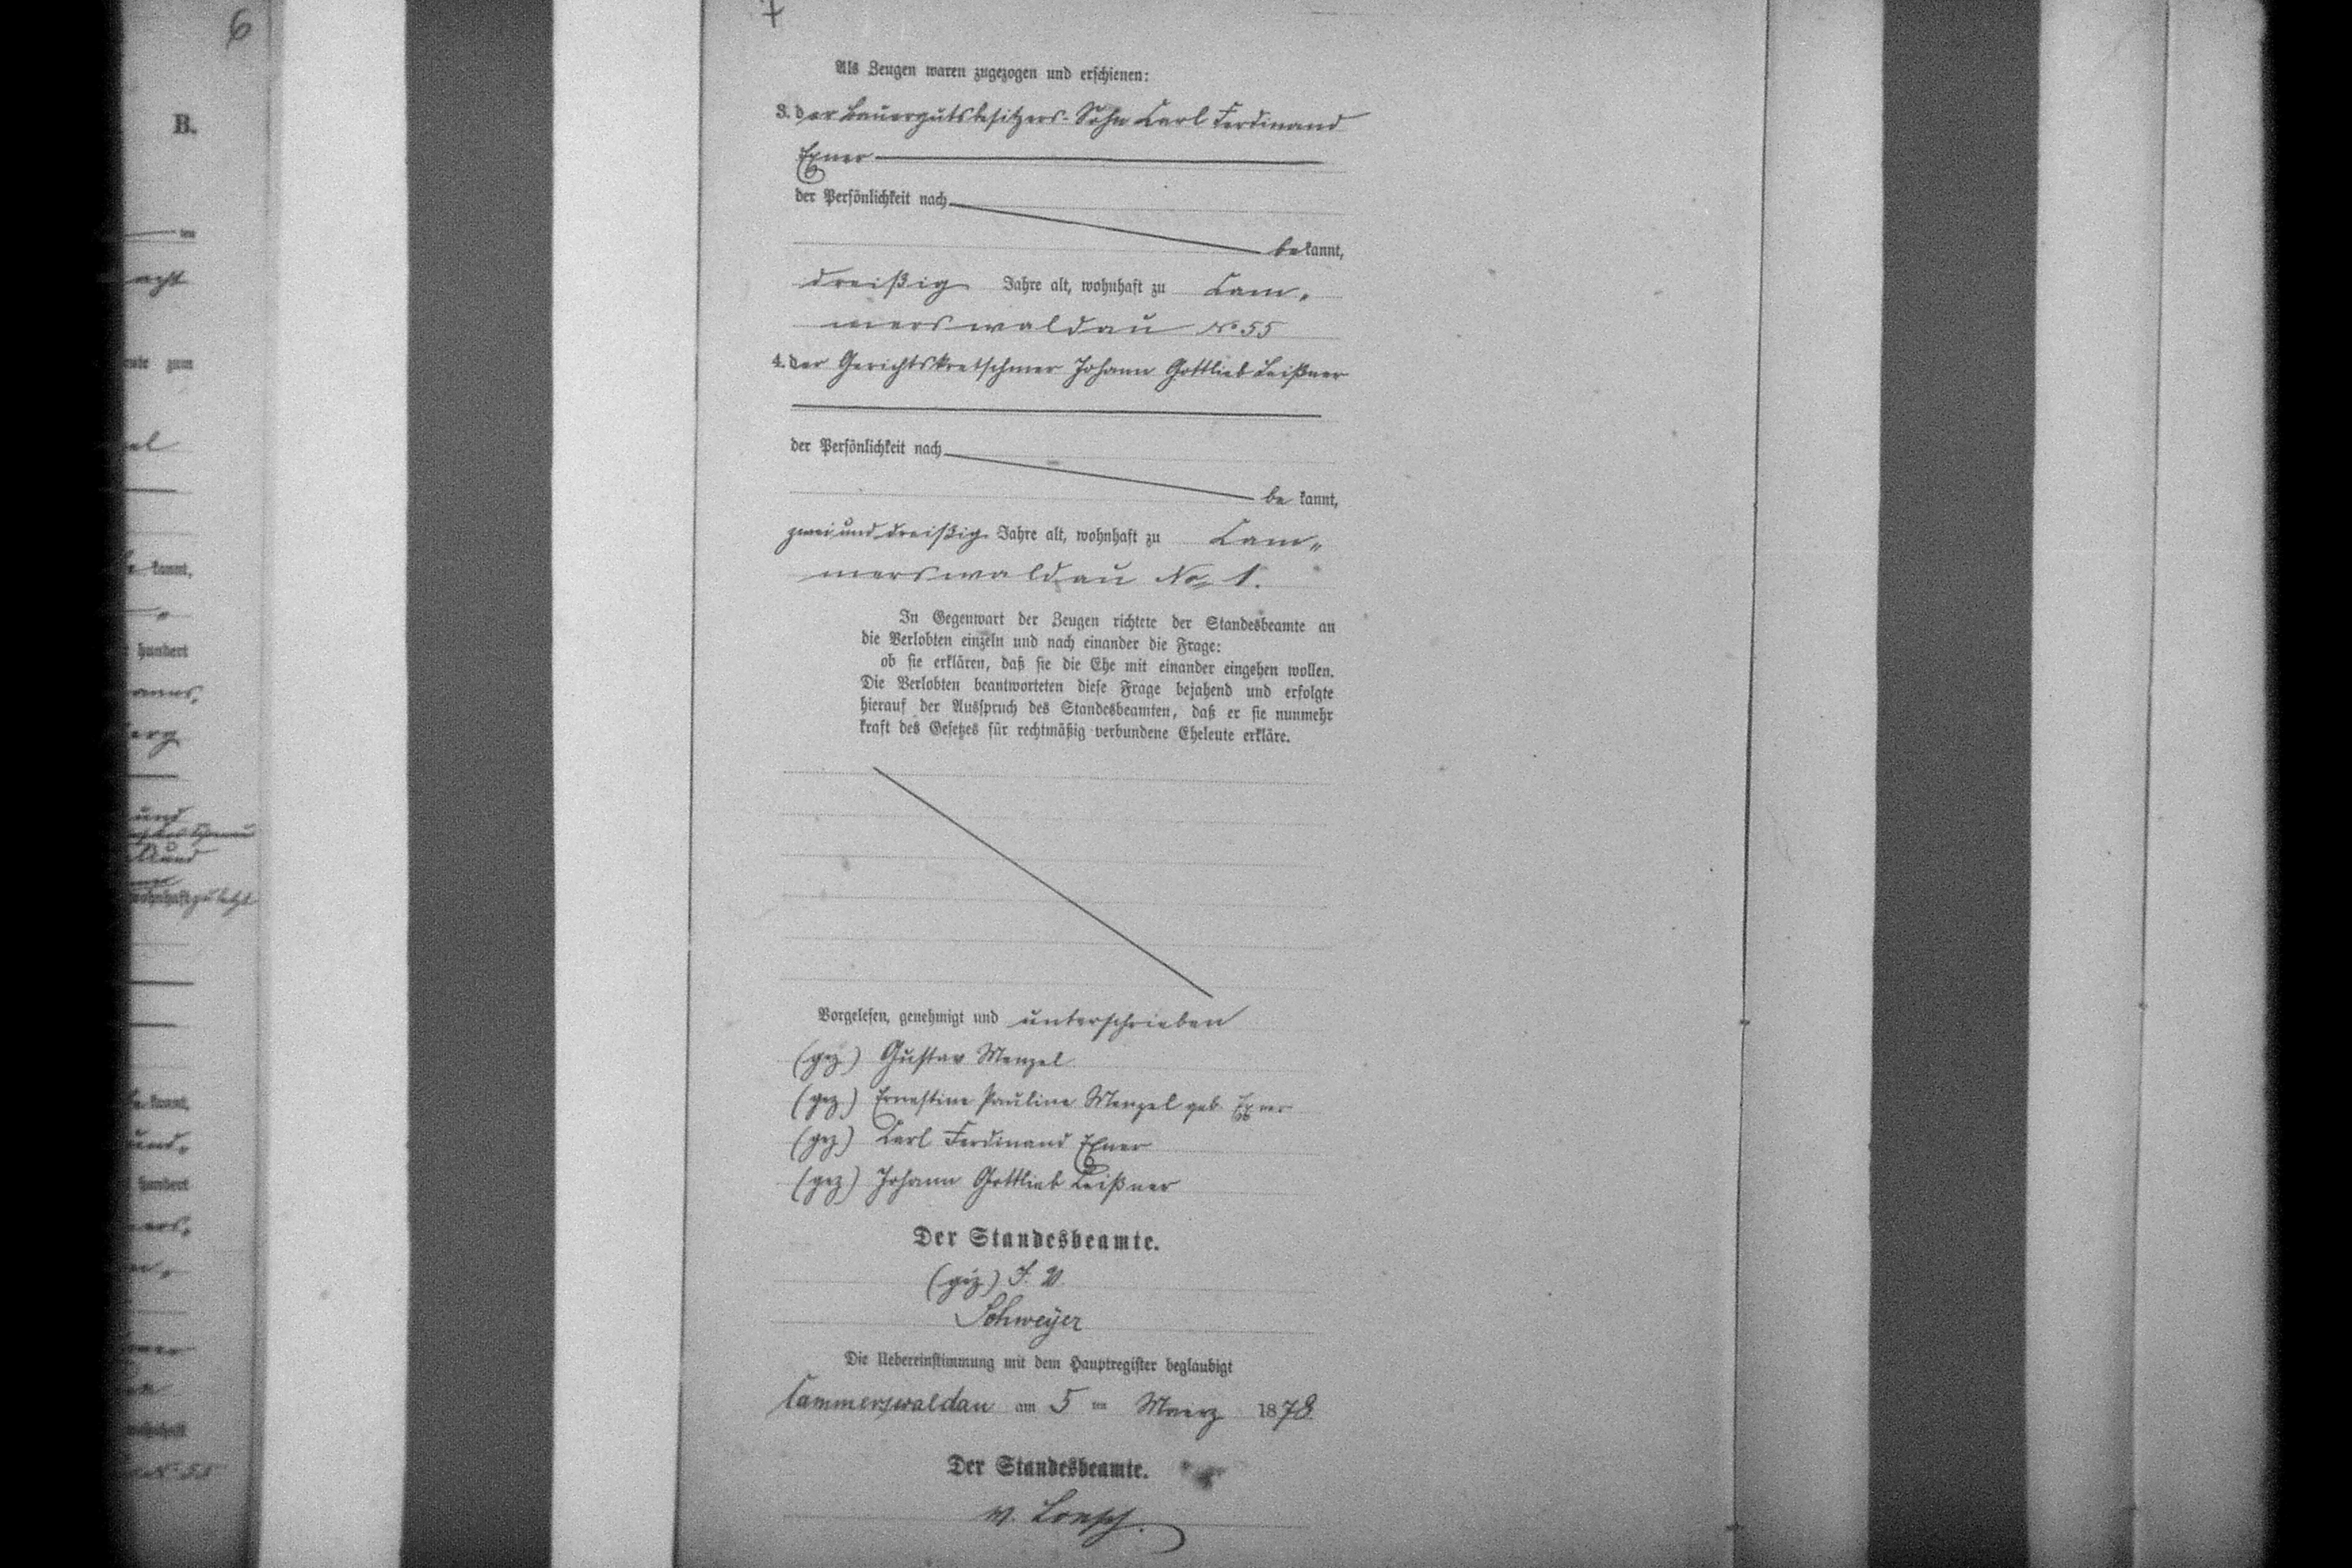 6
B.
ten
acht
zum
kannt,
hundert
erg
und
zuletzt
kannt,
hundert
wohnhaft
No 55
Als Zeugen waren zugezogen und erschienen:
3. der Bauergutsbesitzers-Sohn Carl Ferdinand
Exner
der Persönlichkeit nach
bekannt,
dreißig Jahre alt, wohnhaft zu Cam„
merswaldau No 55
4. der Gerichtskretschmer Johann Gottlieb Leißner
der Persönlichkeit nach
be kannt,
zwei und dreißig Jahre alt, wohnhaft zu Cam„
merswaldau No 1.
In Gegenwart der Zeugen richtete der Standesbeamte an
die Verlobten einzeln und nach einander die Frage:
ob sie erklären, daß sie die Ehe mit einander eingehen wollen.
Die Verlobten beantworteten diese Frage bejahend und erfolgte
hierauf der Ausspruch des Standesbeamten, daß er sie nunmehr
kraft des Gesetzes für rechtmäßig verbundene Eheleute erkläre.
Vorgelesen, genehmigt und unterschrieben
(gez) Gustav Menzel
(gez) Ernestine Pauline Menzel geb. Exner
(gez) Carl Ferdinand Exner
(gez) Johann Gottlieb Leißner
Der Standesbeamte.
(gez) I. V.
Schweyer
Die Uebereinstimmung mit dem Hauptregister beglaubigt
Cammerswaldau am 5 ten Maerz 1878
Der Standesbeamte.
v. Loesch.